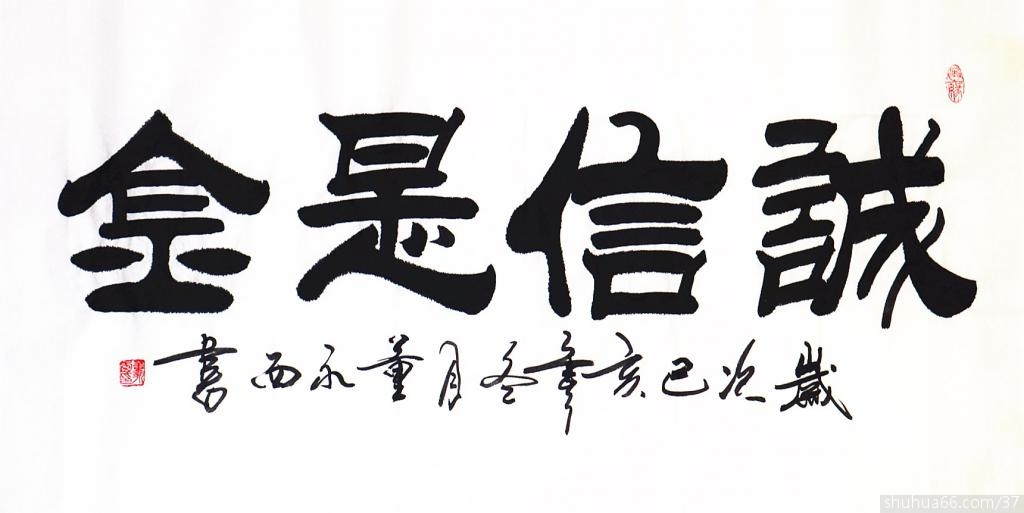 誠信是金
歲次己亥年冬月董永西書
shuhua66.com/37